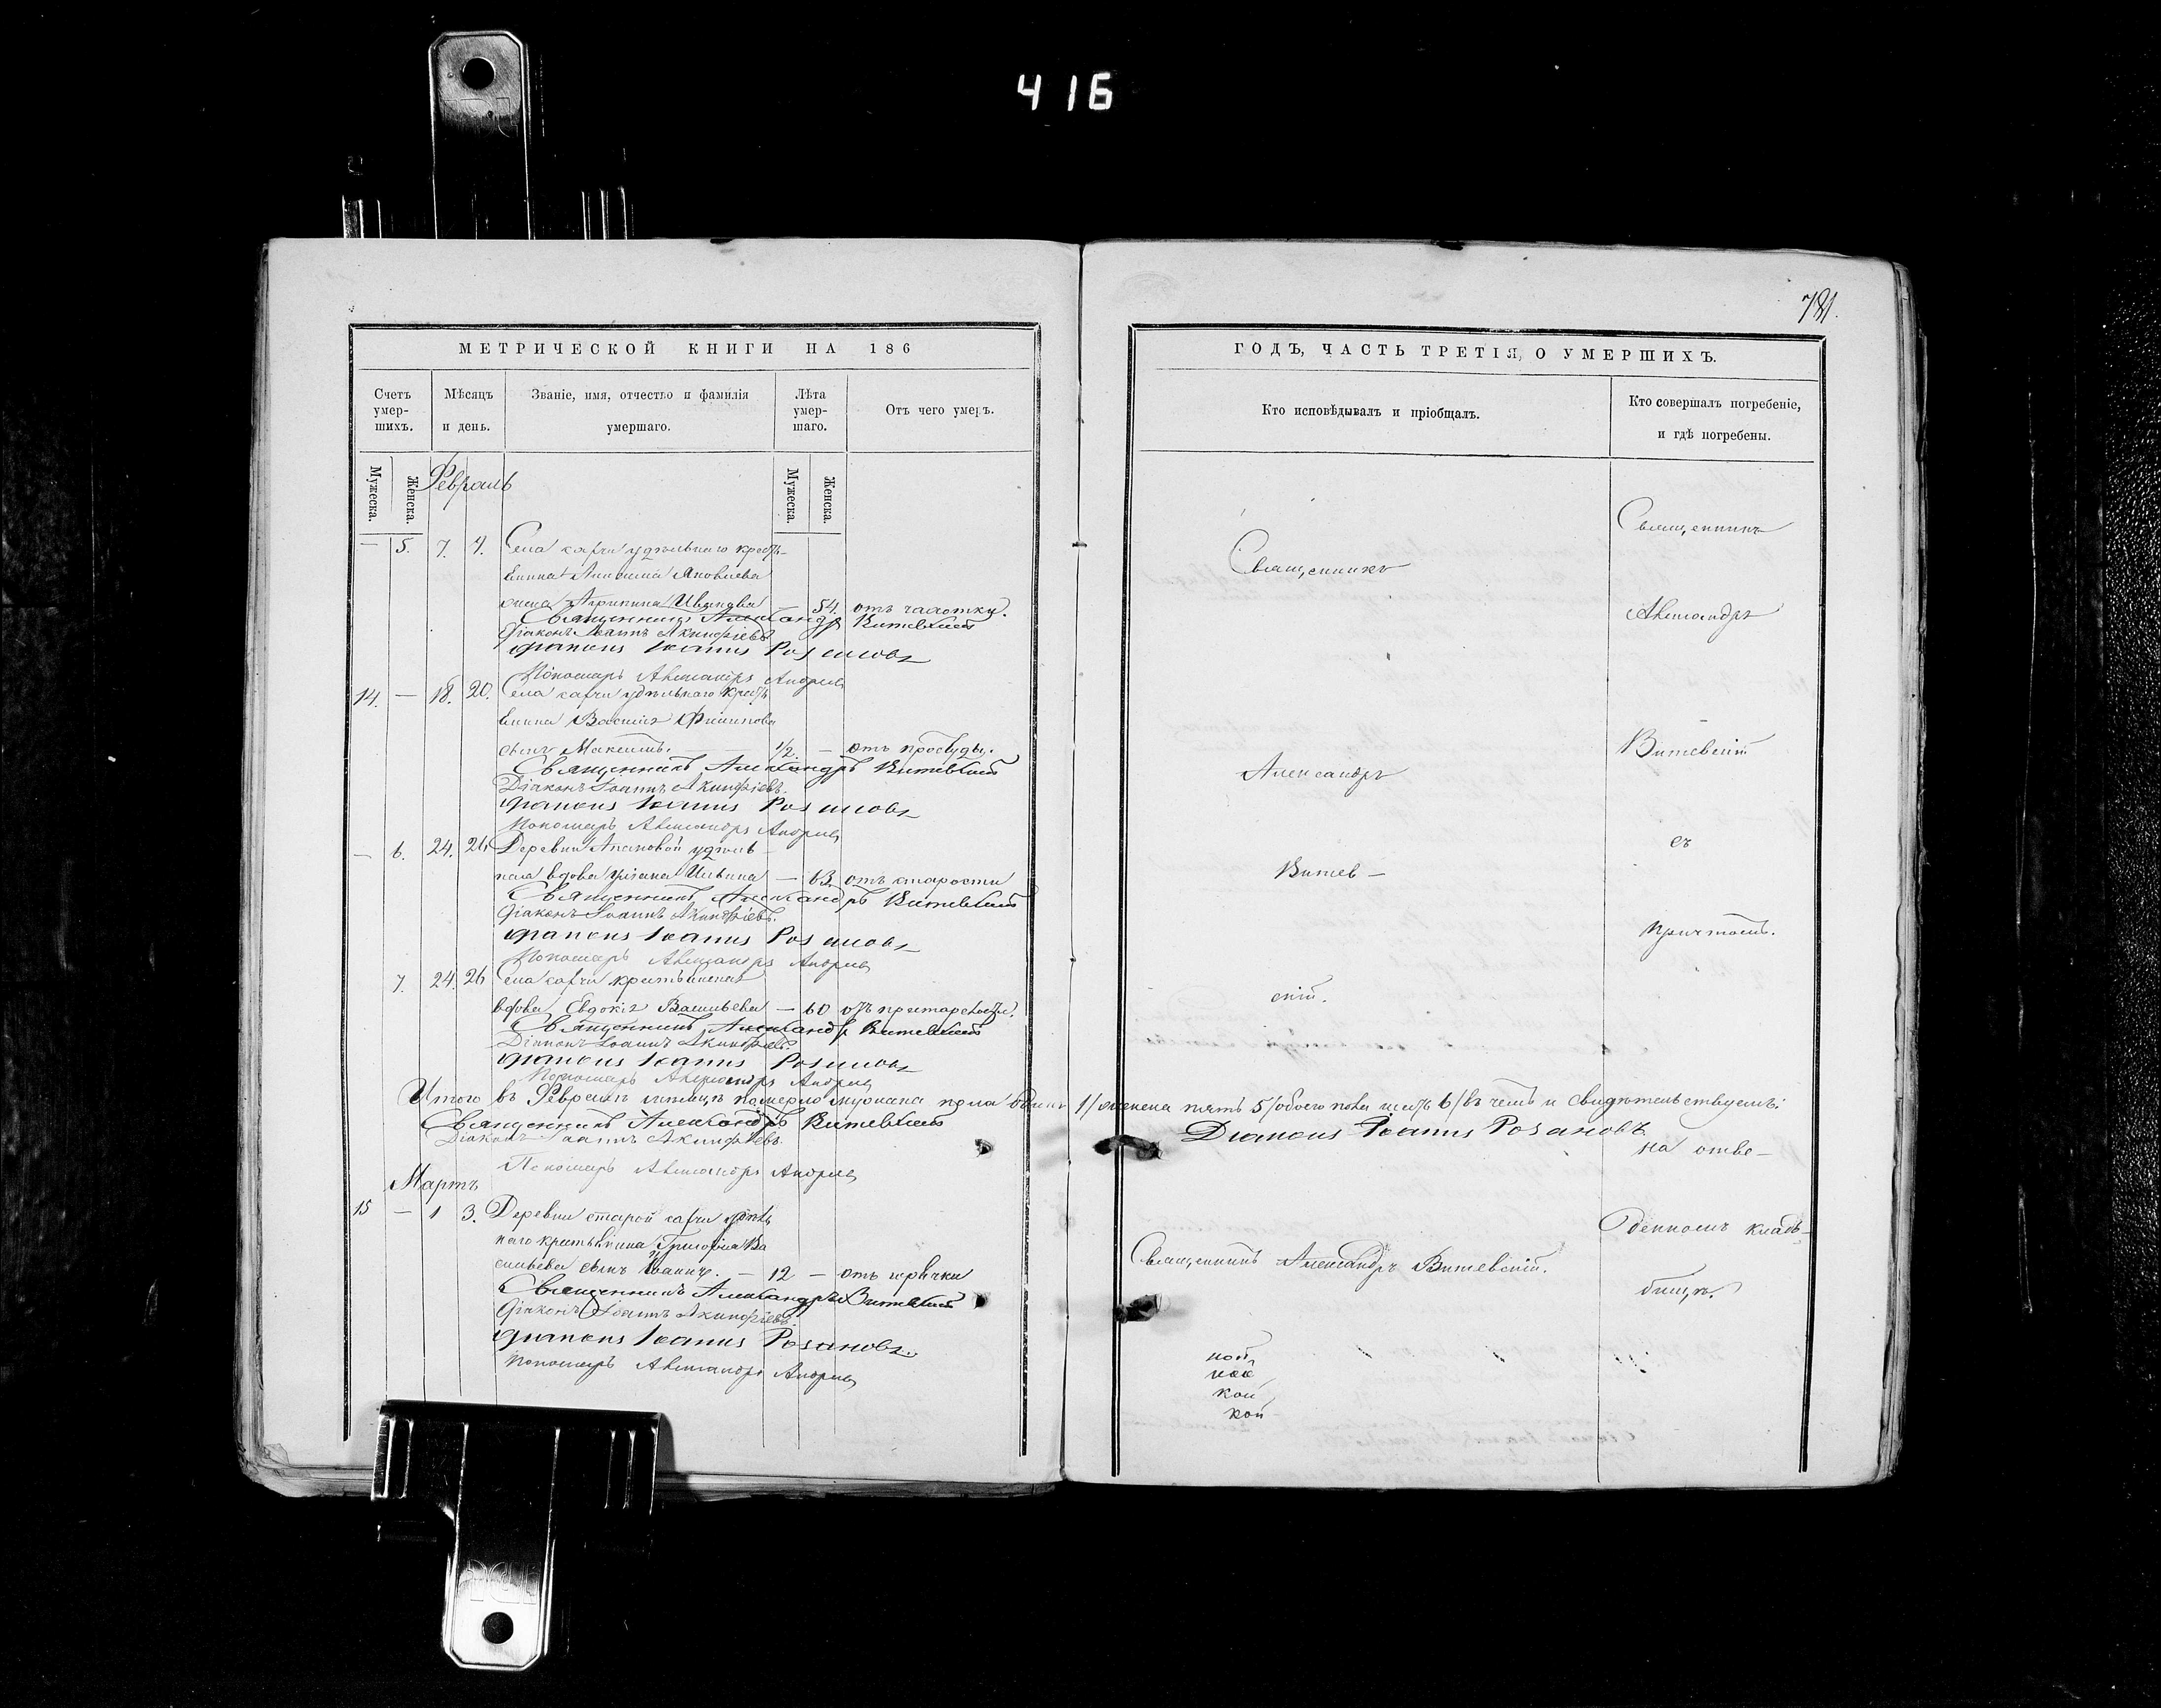 416
781.
МЕТРИЧЕСКОЙ КНИГИ НА 186
Счетъ умер-шихъ.
Мѣсяцъ и день.
Званіе, имя, отчество и фамилія умершаго.
Лѣта умер-шаго.
Отъ чего умеръ.
Мужеска.
Женска.
Мужеска.
Женска.
Февраль
— 5. 7. 9. Села удѣльнаго кресть-
янина Яковлева
жена Агрипина Иванова — 54. отъ чахотки.
Священникъ Александръ Витевскій
Діаконъ Іоаннъ Акинфіевъ
Діаконъ Іоаннъ Розановъ
Пономарь Александръ Андреев
14. — 18. 20. Села удѣльнаго кресть
янина Василія Филипова
сынъ Максимъ. — 1/2. — отъ простуды.
Священникъ Александръ Витевскій
Діаконъ Іоаннъ Акинфіевъ.
Діаконъ Іоаннъ Розановъ
Пономарь Александръ Андреев
— 6. 24. 26 Деревни удѣль
ная вдова Ульяна Ильина — 63. отъ старости
Священникъ Александръ Витевскій
Діаконъ Іоаннъ Акинфіевъ.
Діаконъ Іоаннъ Розановъ
Пономарь Александръ Андреев
7. 24. 26 Села крестьянская
вдова Евдокія Васильева — 60 отъ престарелости.
Священникъ Александръ Витевскій
Діаконъ Іоаннъ Акинфіевъ.
Діаконъ Іоаннъ Розановъ
Пономарь Александръ Андреев
Итого въ Февралѣ мѣсяцѣ померло мужеска пола одинъ 1/ женска пять 5/ обоего пола шесть 6/ въ чемъ и свидѣтельствуемъ:
Священникъ Александръ Витевскій
Діаконъ Іоаннъ Акинфіевъ.
Діаконъ Іоаннъ Розановъ
Пономарь Александръ Андреев
Мартъ
15 — 1 3. Деревни старой удѣль
наго крестьянина Григорія Ва
сильева сынъ Іоаннъ. — 12 — отъ горячки
Священникъ Александръ Витевскій
Діаконъ Іоаннъ Акинфіевъ.
Діаконъ Іоаннъ Розановъ.
Пономарь Александръ Андреев
ГОДЪ, ЧАСТЬ ТРЕТІЯ, О УМЕРШИХЪ.
Кто исповѣдывалъ и пріобщалъ.
Кто совершалъ погребеніе, и гдѣ погребены.
Священникъ
Александръ
Витев—
скій.
Священникъ Александръ Витевскій.
Священникъ
Александръ
Витевскій
съ
причтомъ.
на отве—
денномъ клад-
бищѣ.
кой
кой